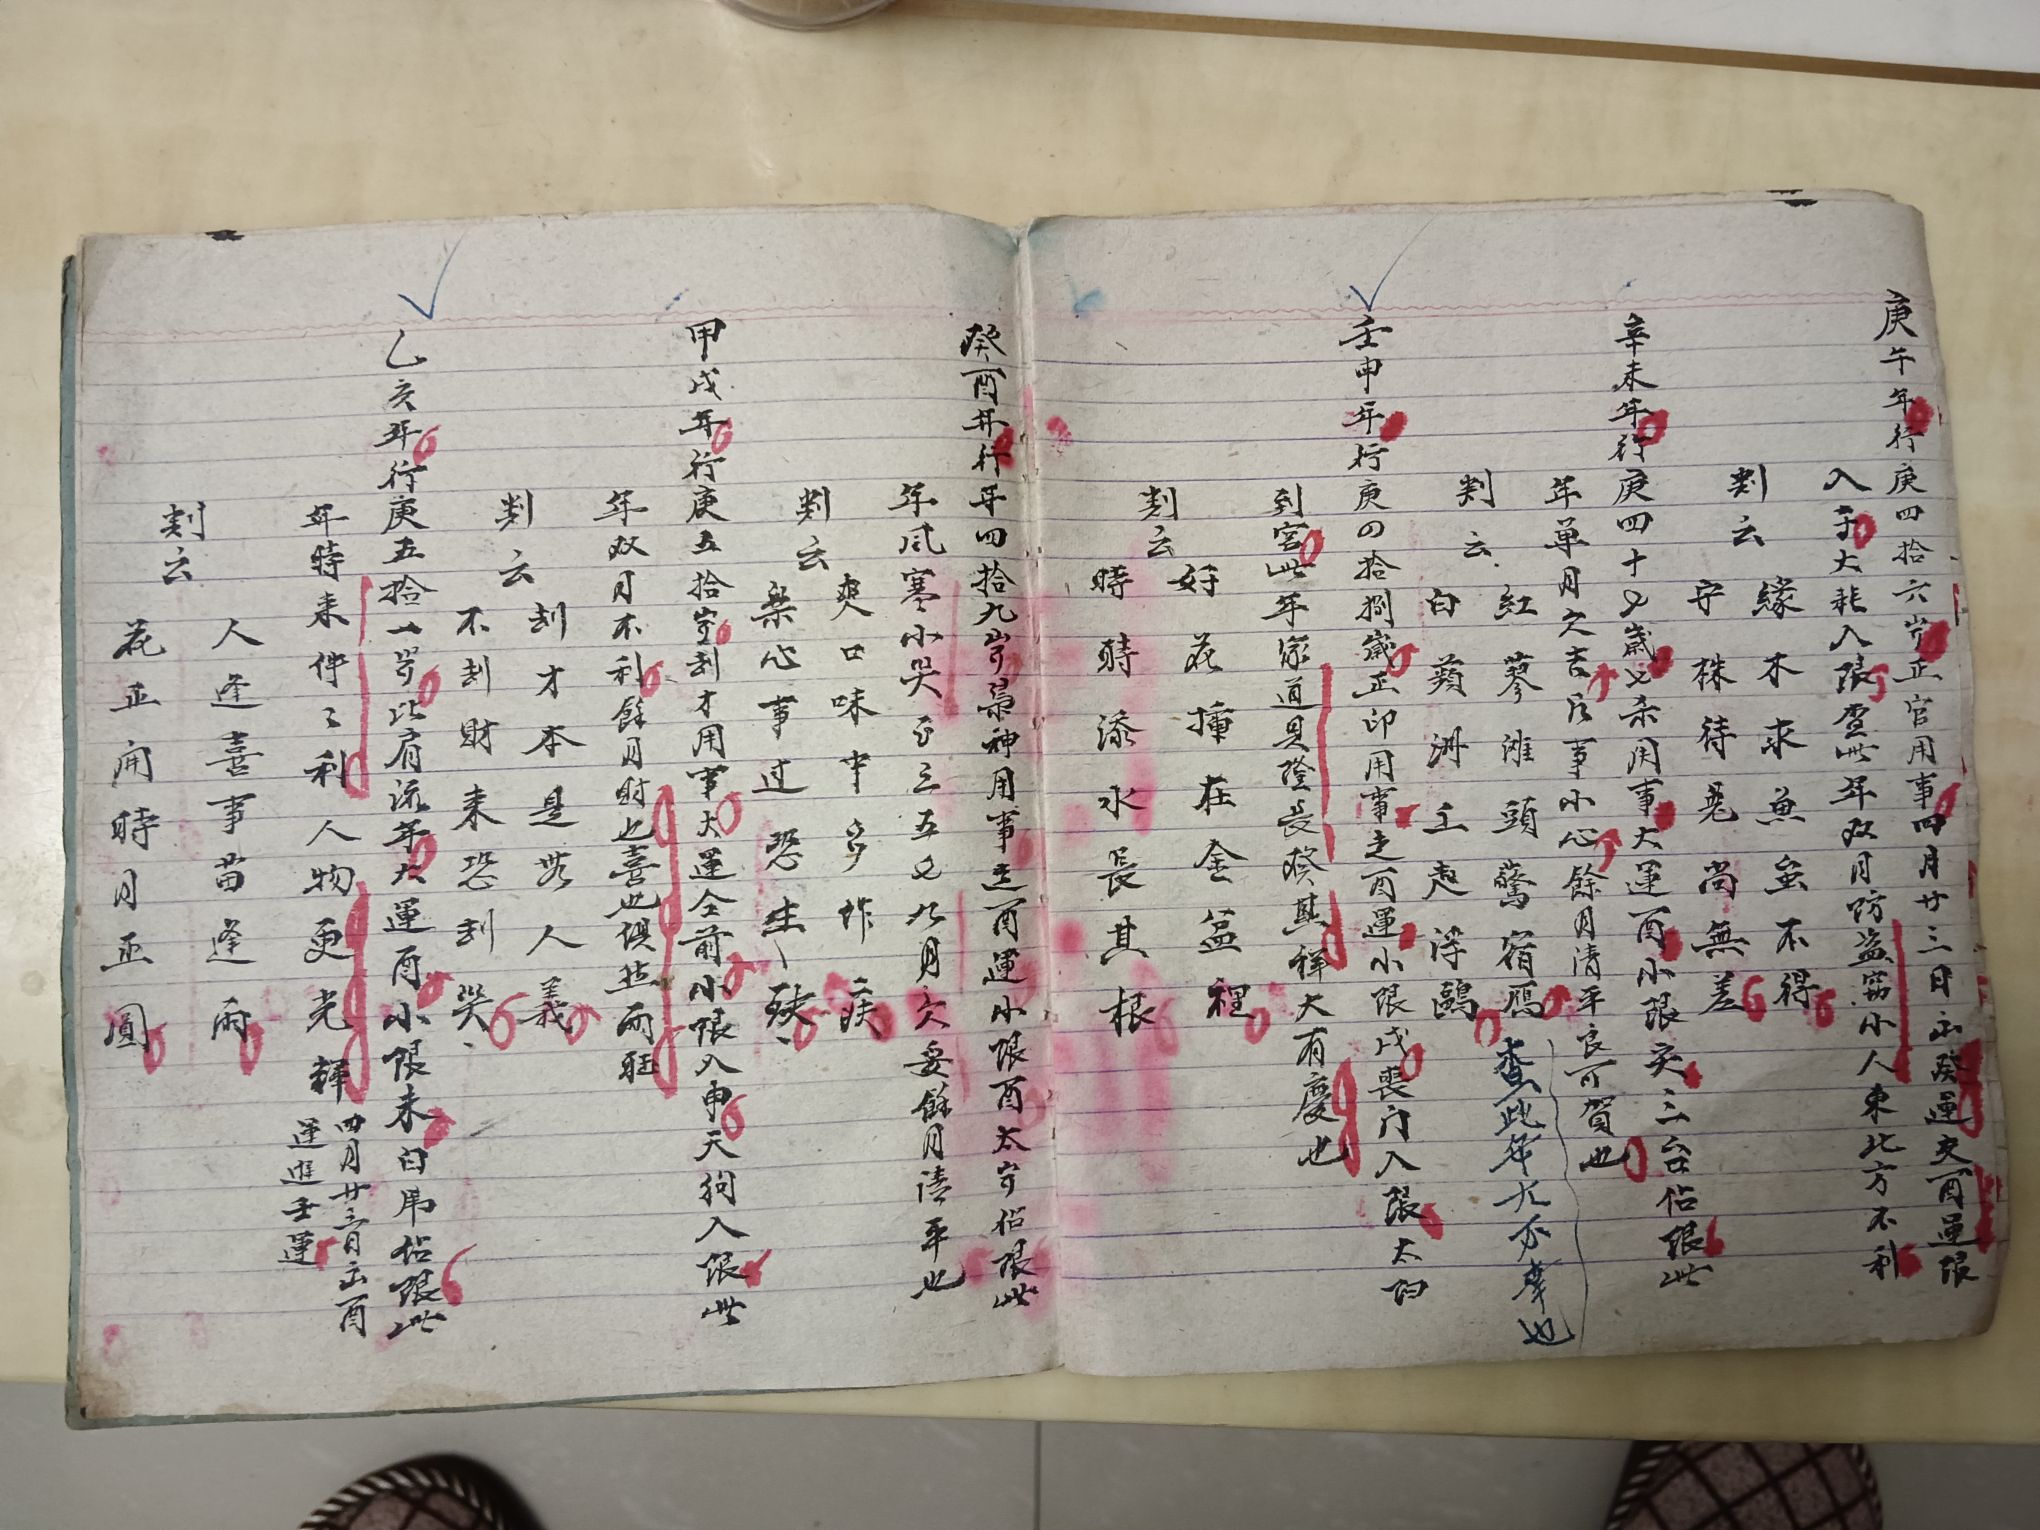 庚午年行庚四拾六岁正官用事四月廿三日出癸運交酉運限
入子大耗入限查此年双月防盗窃小人東北方不利
判云
緣木求魚魚不得
守株待兎尚無差
辛未年行庚四十七歲七杀用事大運酉小限亥三台佔限此
年单月欠吉凡事小心餘月清平良可賀也
判云
紅蓼滩頭驚宿鴈
白蘋洲上走浮鷗
查此年尤不幸也
壬申年行庚四拾捌歲正印用事走酉運小限戌喪门入限太阳
到宮此年家道興隆長發其祥大有慶也
判云
好花揷在金盆裡
時時添水長其根
癸酉年行年四拾九岁梟神用事走酉運小限酉太岁佔限此
年风寒小哭正三五七九月欠妥餘月清平也
判云
爽口味中多作疾
樂心事过恐生殃
甲戌年行庚五拾岁刮才用事大運仝前小限入申天狗入限此
年双月不利餘月財也喜也俱然両旺
判云
刮才本是無人義
不刮財来恐刮哭
乙亥年行庚五拾一岁比肩流年大運酉小限未白虎佔限此
年時来件々利人物更光輝
四月廿三日出酉
運進壬運
判云
人逢喜事苗逢雨
花正開時月正圓